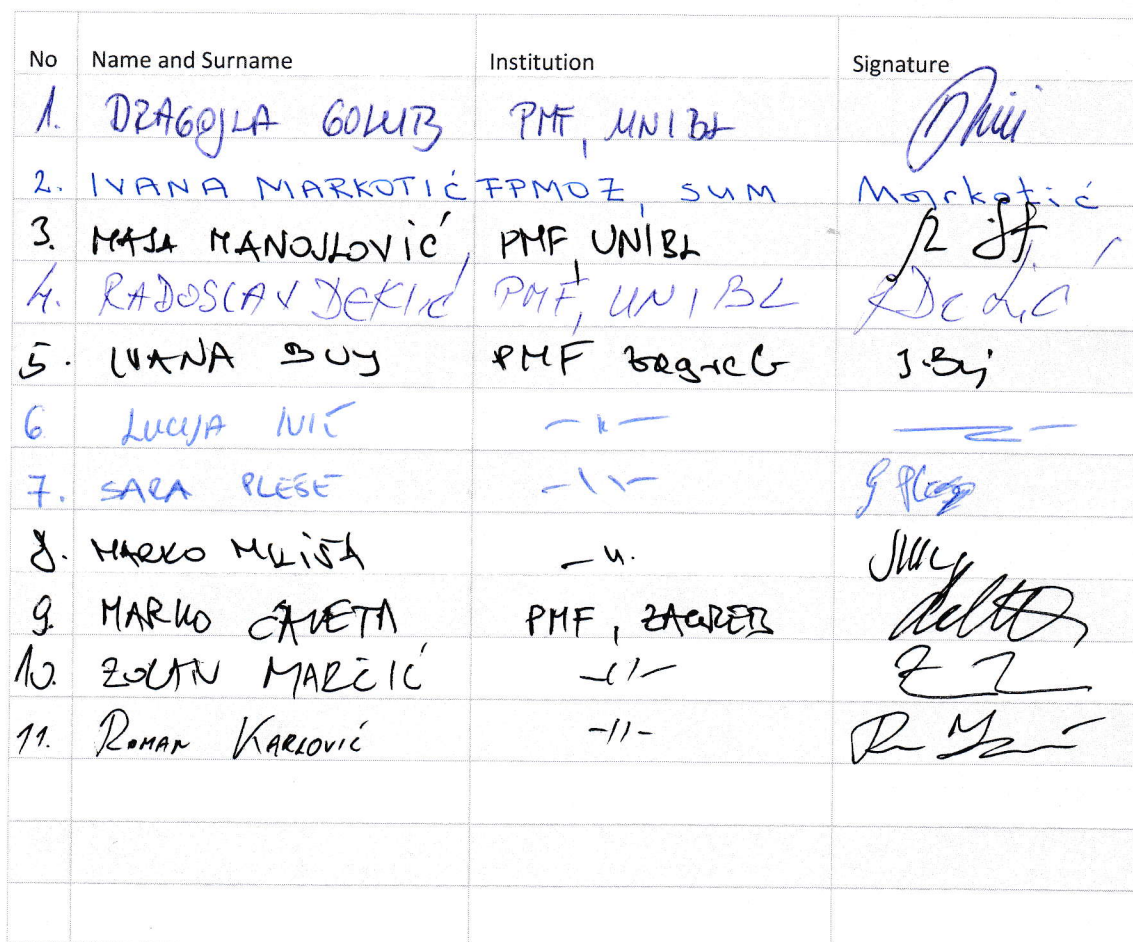 No Name and Surname Institution Signature
1. DRAGOJLA GOLUB PMF, UNIBL
2. IVANA MARKOTIĆ FPMOZ, SUM Markotić
3. MAJA MANOJLOVIĆ, PMF, UNIBL
4. RADOSLAV DEKIĆ PMF, UNIBL
5. IVANA BUJ PMF Zagreb I. Buj
6 LUCIJA IVIĆ -11-
7. SARA PLEŠE -11-
8. MARKO -11-
9. MARKO ĆALETA PMF, ZAGREB
10. ZORAN MARČIĆ -11-
11. ROMAN KARLOVIĆ -11-